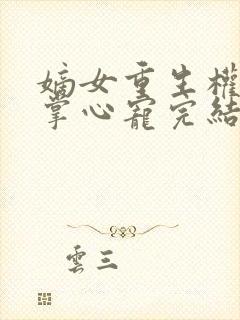 嫡女重生權
掌心寵完結
雲三